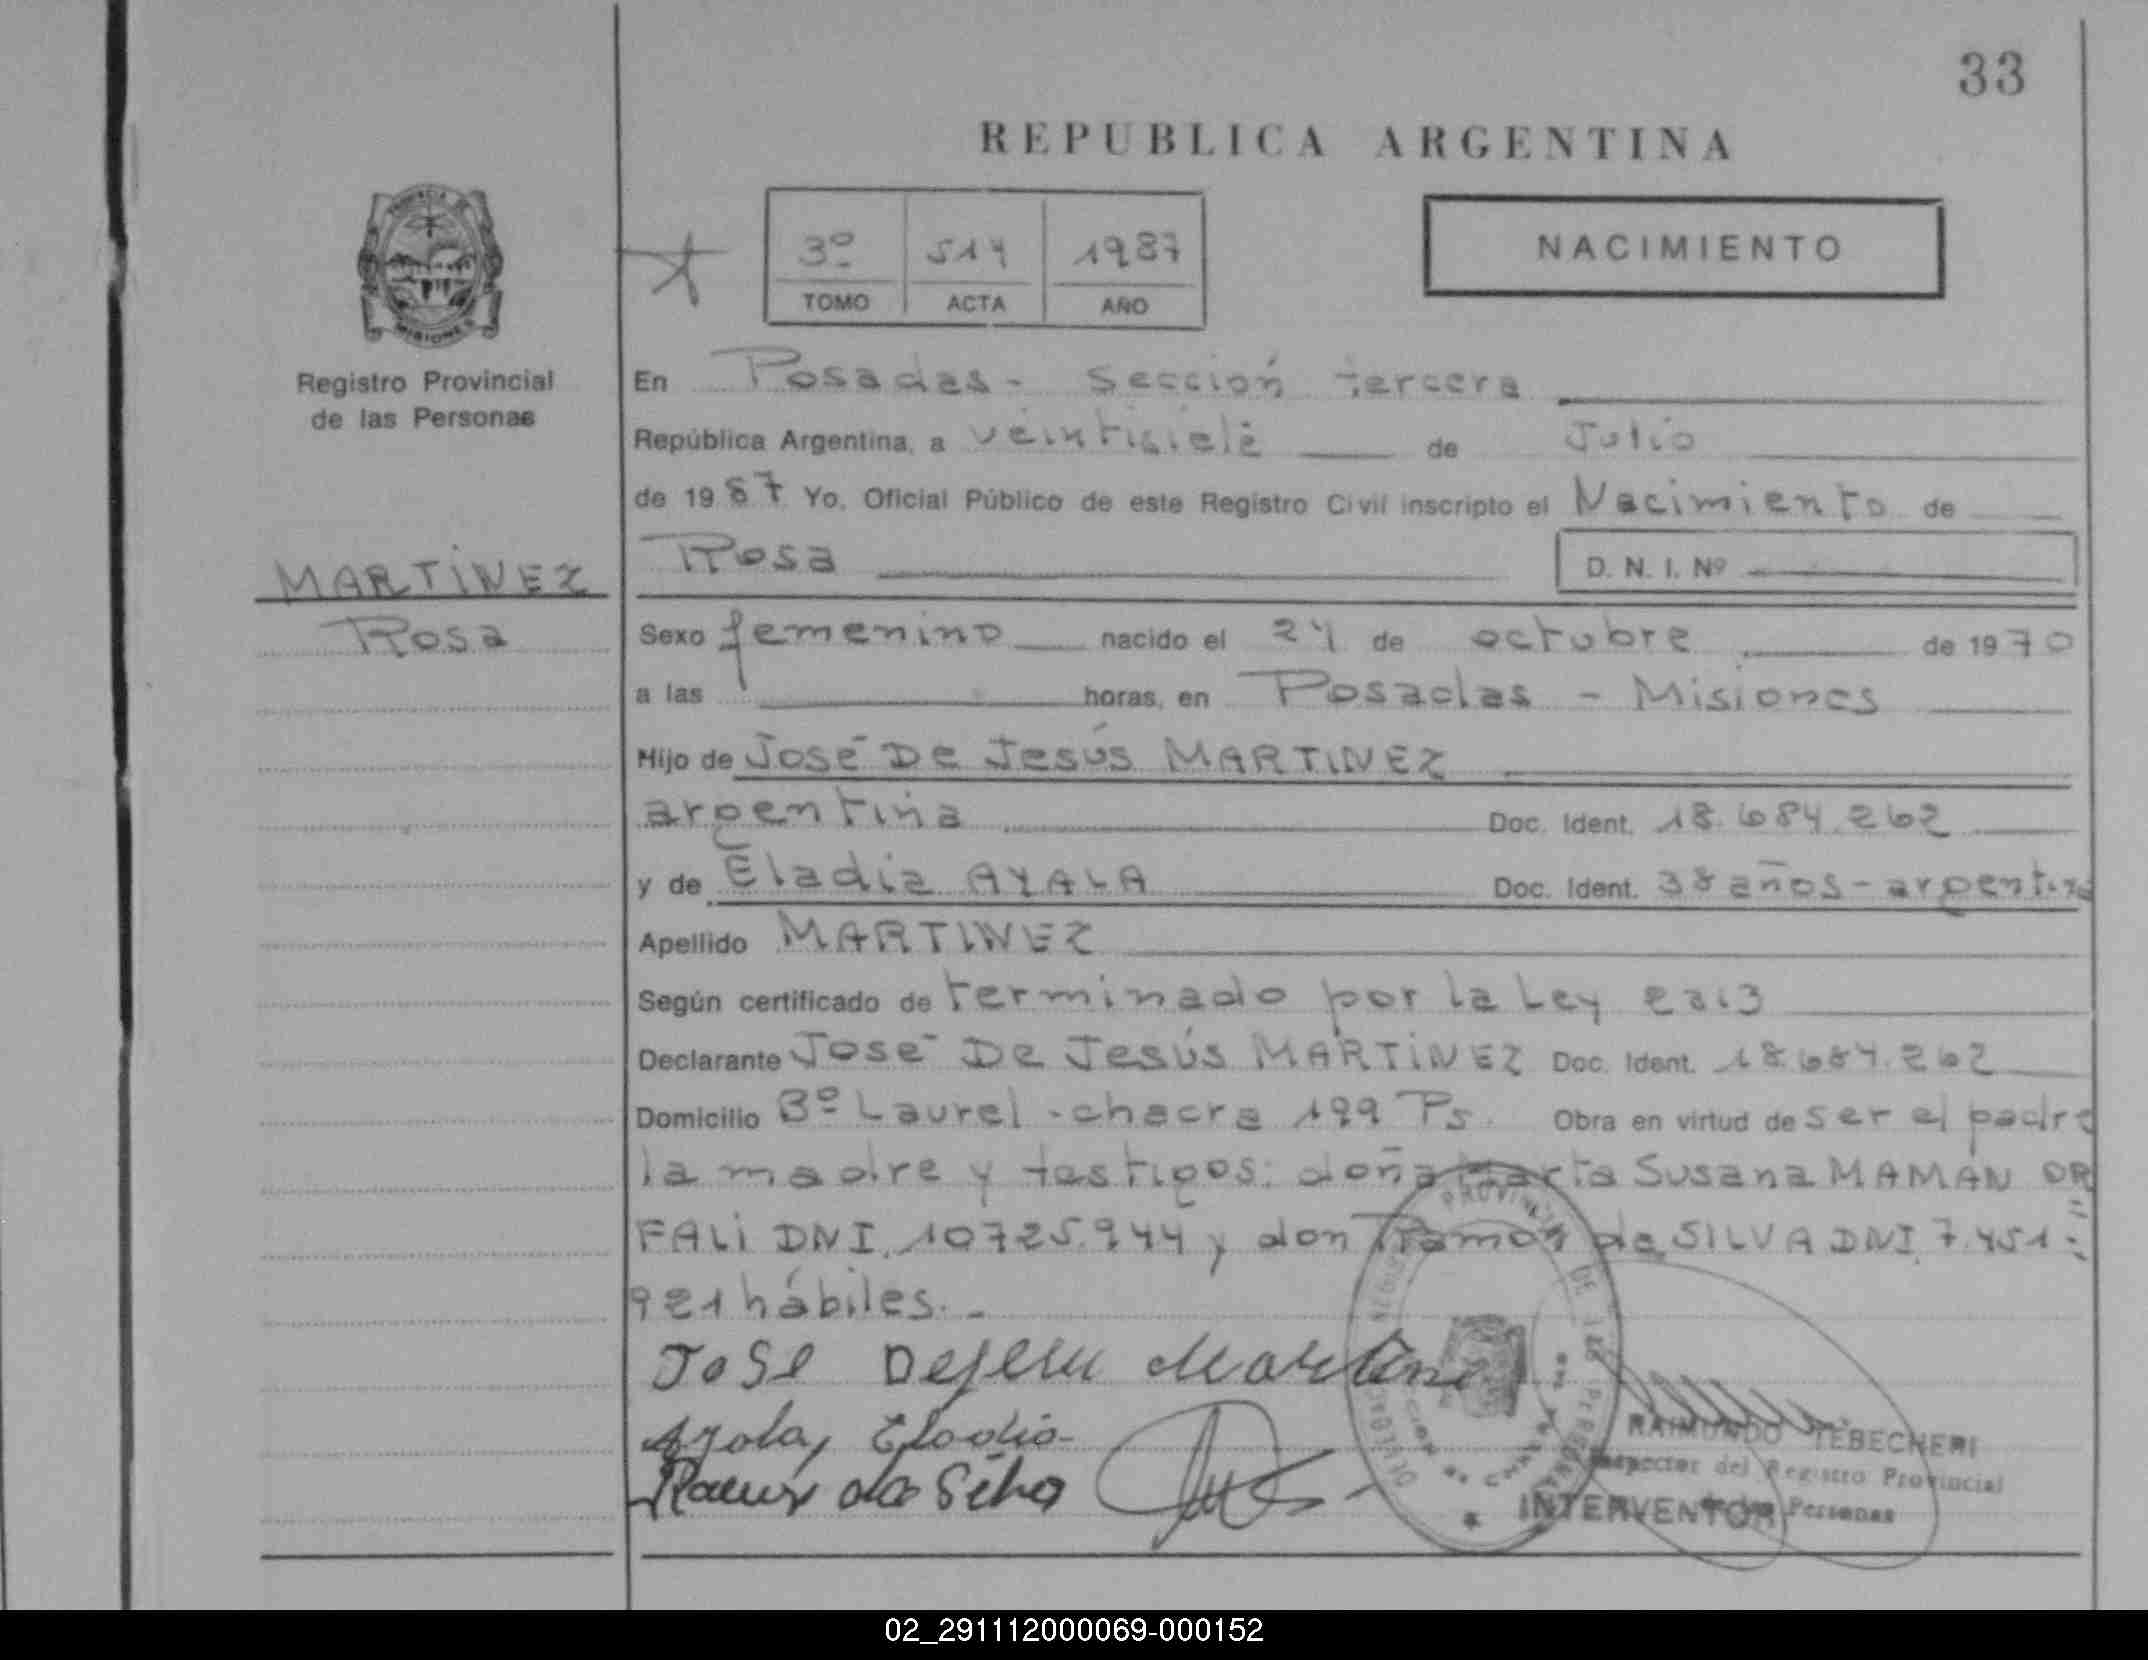 33
REPUBLICA ARGENTINA
3º 514 1987
TOMO ACTA AÑO
NACIMIENTO
PROVINCIA
MISIONES
Registro Provincial
de las Personas
MARTINEZ
Rosa
En Posadas - Sección tercera
República Argentina, a veintisiete de Julio
de 1987 Yo, Oficial Público de este Registro Civil inscripto el Nacimiento de
Rosa D. N. I. Nº
Sexo femenino nacido el 24 de octubre de 1970
a las horas, en Posadas - Misiones
Hijo de José De Jesús MARTINEZ
argentina Doc. Ident. 18.684.262
y de Eladia AYALA Doc. Ident. 38 años - argentina
Apellido MARTINEZ
Según certificado de terminado por la Ley
Declarante José De Jesús MARTINEZ Doc. Ident. 18.684.262
Domicilio Bº Laurel - chacra 199 Ps. Obra en virtud de ser el padre
la madre y testigos: doña Marta Susana MAMAN OR=
FALI DNI. 10725.944 y don Ramón de SILVA DNI 7.451.-
921 hábiles.-
Jose Dejesu Martine
Ayala, Eladia
Ramon da Silva
RAIMUNDO TEBECHERI
Inspector del Registro Provincial
INTERVENTOR Personas
02_291112000069-000152